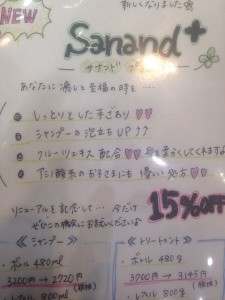 新しくなりました
NEW
Sanand+
サナンド プラス
あなたに癒しと至福の時を…
しっとりとした手ざわり
シャンプーの泡立ちUP↗↗
フルーツエキス配合 髪を柔らくしてくれますよ
アミノ酸系のお子さまにも優しい処方
リニューアルを記念して… 今だけ
ぜひこの機会にお試しくださいね
15%OFF
《シャンプー》
・ボトル 480ml
3200円→2720円
(税抜)
・レフィル 800ml
《トリートメント》
・ボトル 480g
3700円→3145円
(税抜)
・レフィル 800g